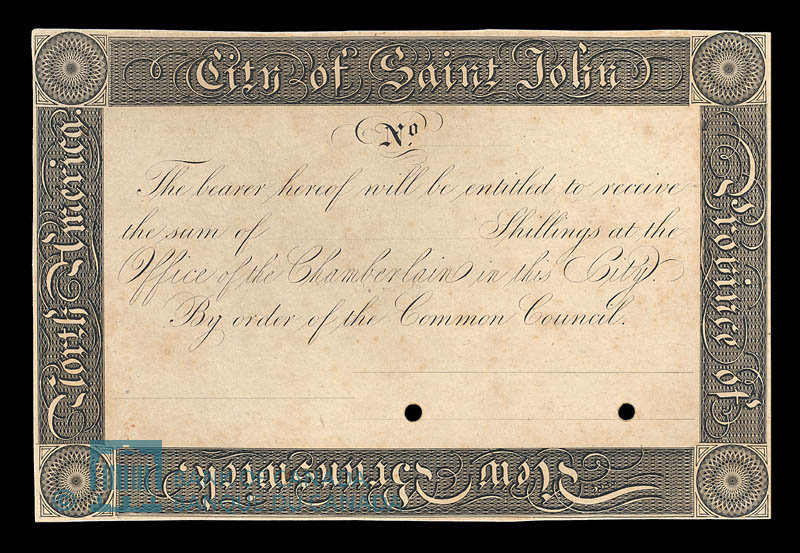 City of Saint John
Province of
New Brunswick,
North America.
No.
The bearer hereof will be entitled to receive
the sum of Shillings at the
Office of the Chamberlain in this City.
By order of the Common Council.
BANQUE DU CANADA